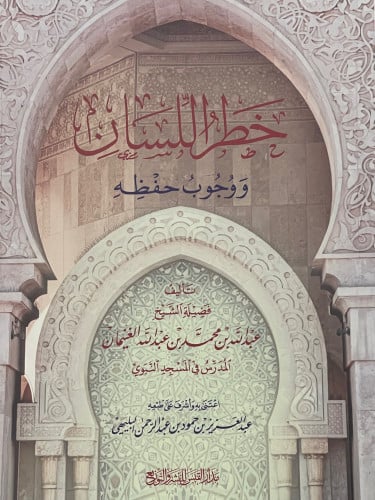 خَطَرُ اللِّسَانِ
وَوُجُوبُ حِفْظِهِ
تَأليف
فَضِيلَة الشَّيْخ
عَبْد الله بْن مُحَمَّد بْن عَبْد الله الغُنَيْمَان
المُدَرِّسُ فِي المَسْجِدِ النَّبَوِيِّ
اعْتَنَى بِهِ وَأَشْرَفَ عَلَى طَبْعِهِ
عَبْد العَزِيز بْن حَمُود بْن عَبْد الرَّحْمَن البليهي
مدار القبس للنشر والتوزيع